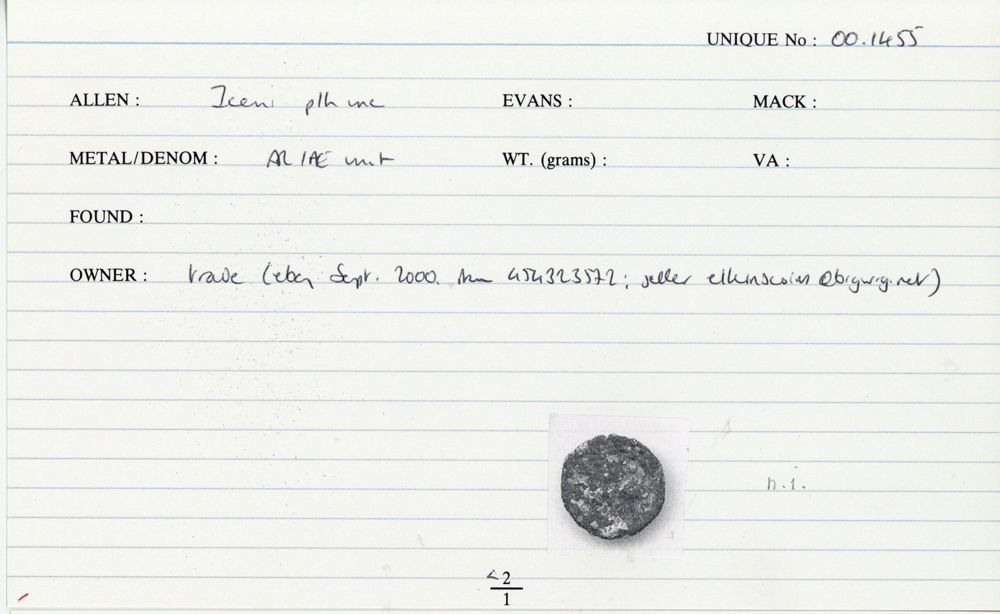 UNIQUE No : 00.1455
ALLEN : Iceni plh unc EVANS : MACK :
METAL/DENOM : AR/AE unit WT. (grams) : VA :
FOUND :
OWNER : trade (ebay Sept. 2000. 454323572; seller elkinscoins@bigwig.net)
h.i.
<2
1